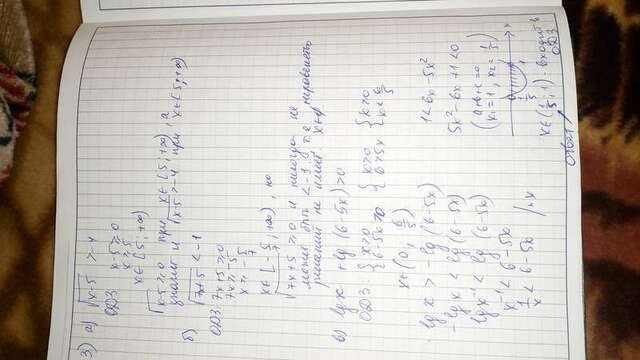 3) а) √x-5 > -4
ОДЗ x-5≥0
x≥5
x∈[5;+∞)
√x-5 ≥0 при x∈[5;+∞), а
значит и √x-5 > -4 при x∈[5;+∞)
б) √7x+5 < -1
ОДЗ 7x+5≥0
7x≥-5
x≥-5/7
x∈[-5/7;+∞), но
√7x+5 ≥0 и никогда не
может быть < -1, т.е неравенство
решений не имеет x∈∅
в) lg x + lg (6-5x) >0
ОДЗ {x>0 6-5x>0 {x>0 6>5x {x>0 x<6/5
x∈(0; 6/5)
lg x > -lg (6-5x)
-lg x < lg (6-5x)
lg x⁻¹ < lg (6-5x)
x⁻¹ < 6-5x
1/x < 6-5x /·x
1<6x-5x²
5x²-6x+1<0
(a+b+c=0
x₁=1, x₂=1/5)
1/5 1 x
x∈(1/5;1) - входит в
ОДЗ
Ответ